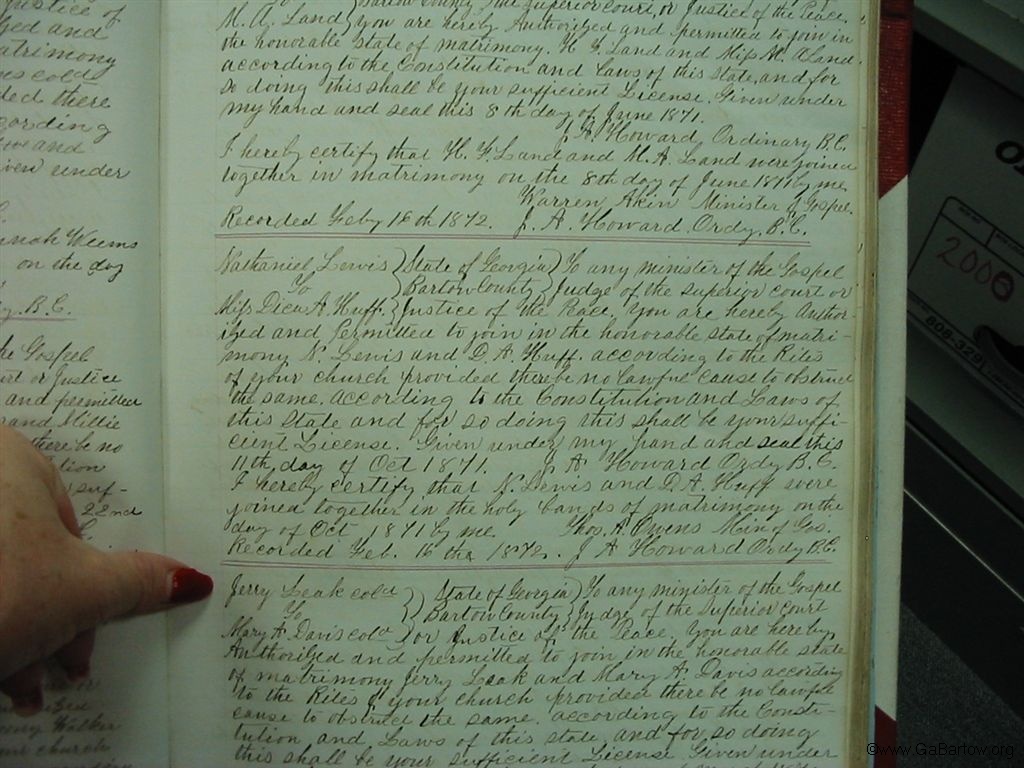 ustice of
ged and
atrimony
ns cold
ded there
cording
ws and
iven under
nnah Weems
on the day
y. B. C.
he Gospel
urt or Justice
and permitted
and Millie
there be no
tion
suf-
22nd
ny Walker
ur church
Bartow County the superior court, or Justice of the Peace,
M. A. Land you are hereby Authorized and permitted to join in
the honorable state of matrimony. H. Y. Land and Miss M. A Land.
according to the Constitution and Laws of this State, and for
so doing this shall be your sufficient License. Given under
my hand and seal this 8th day of June 1871.
J. A. Howard Ordinary B.C.
I hereby certify that H. Y. Land and M. A. Land were joined
together in matrimony on the 8th day of June 1871 by me,
Warren Akin Minister of Gospel.
Recorded Feby 16th 1872. J. A. Howard Ordy. B. C.
Nathaniel Lewis } State of Georgia } To any minister of the Gospel
To } Bartow County } Judge of the superior court or
Miss Dica A. Huff. } Justice of the Peace, You are hereby Author-
ized and Permitted to join in the honorable state of matri-
mony N. Lewis and D. A. Huff. according to the Rites
of your church provided there be no lawful cause to obstruct
the same, according to the Constitution and Laws of
this State and for so doing this shall be your suffi-
cient License. Given under my hand and seal this
11th day of Oct 1871. J. A. Howard Ordy B. C.
I hereby certify that N. Lewis and D. A. Huff were
joined together in the holy bands of matrimony on the
day of Oct 1871 by me. Thos. A. Owens Min of Gos.
Recorded Feb. 16th 1872. J A Howard Ordy B.C.
Jerry Leak cold } State of Georgia } To any minister of the Gospel
To } Bartow County } Judge of the Superior court
Mary A. Davis cold } or Justice of the Peace, You are hereby
Authorized and permitted to join in the honorable state
of matrimony Jerry Leak and Mary A. Davis according
to the Rites of your church provided there be no lawful
cause to obstruct the same, according to the Consti-
tution and Laws of this state, and for so doing
this shall be your sufficient License Given under
2000
608-329
©www.GaBartow.org